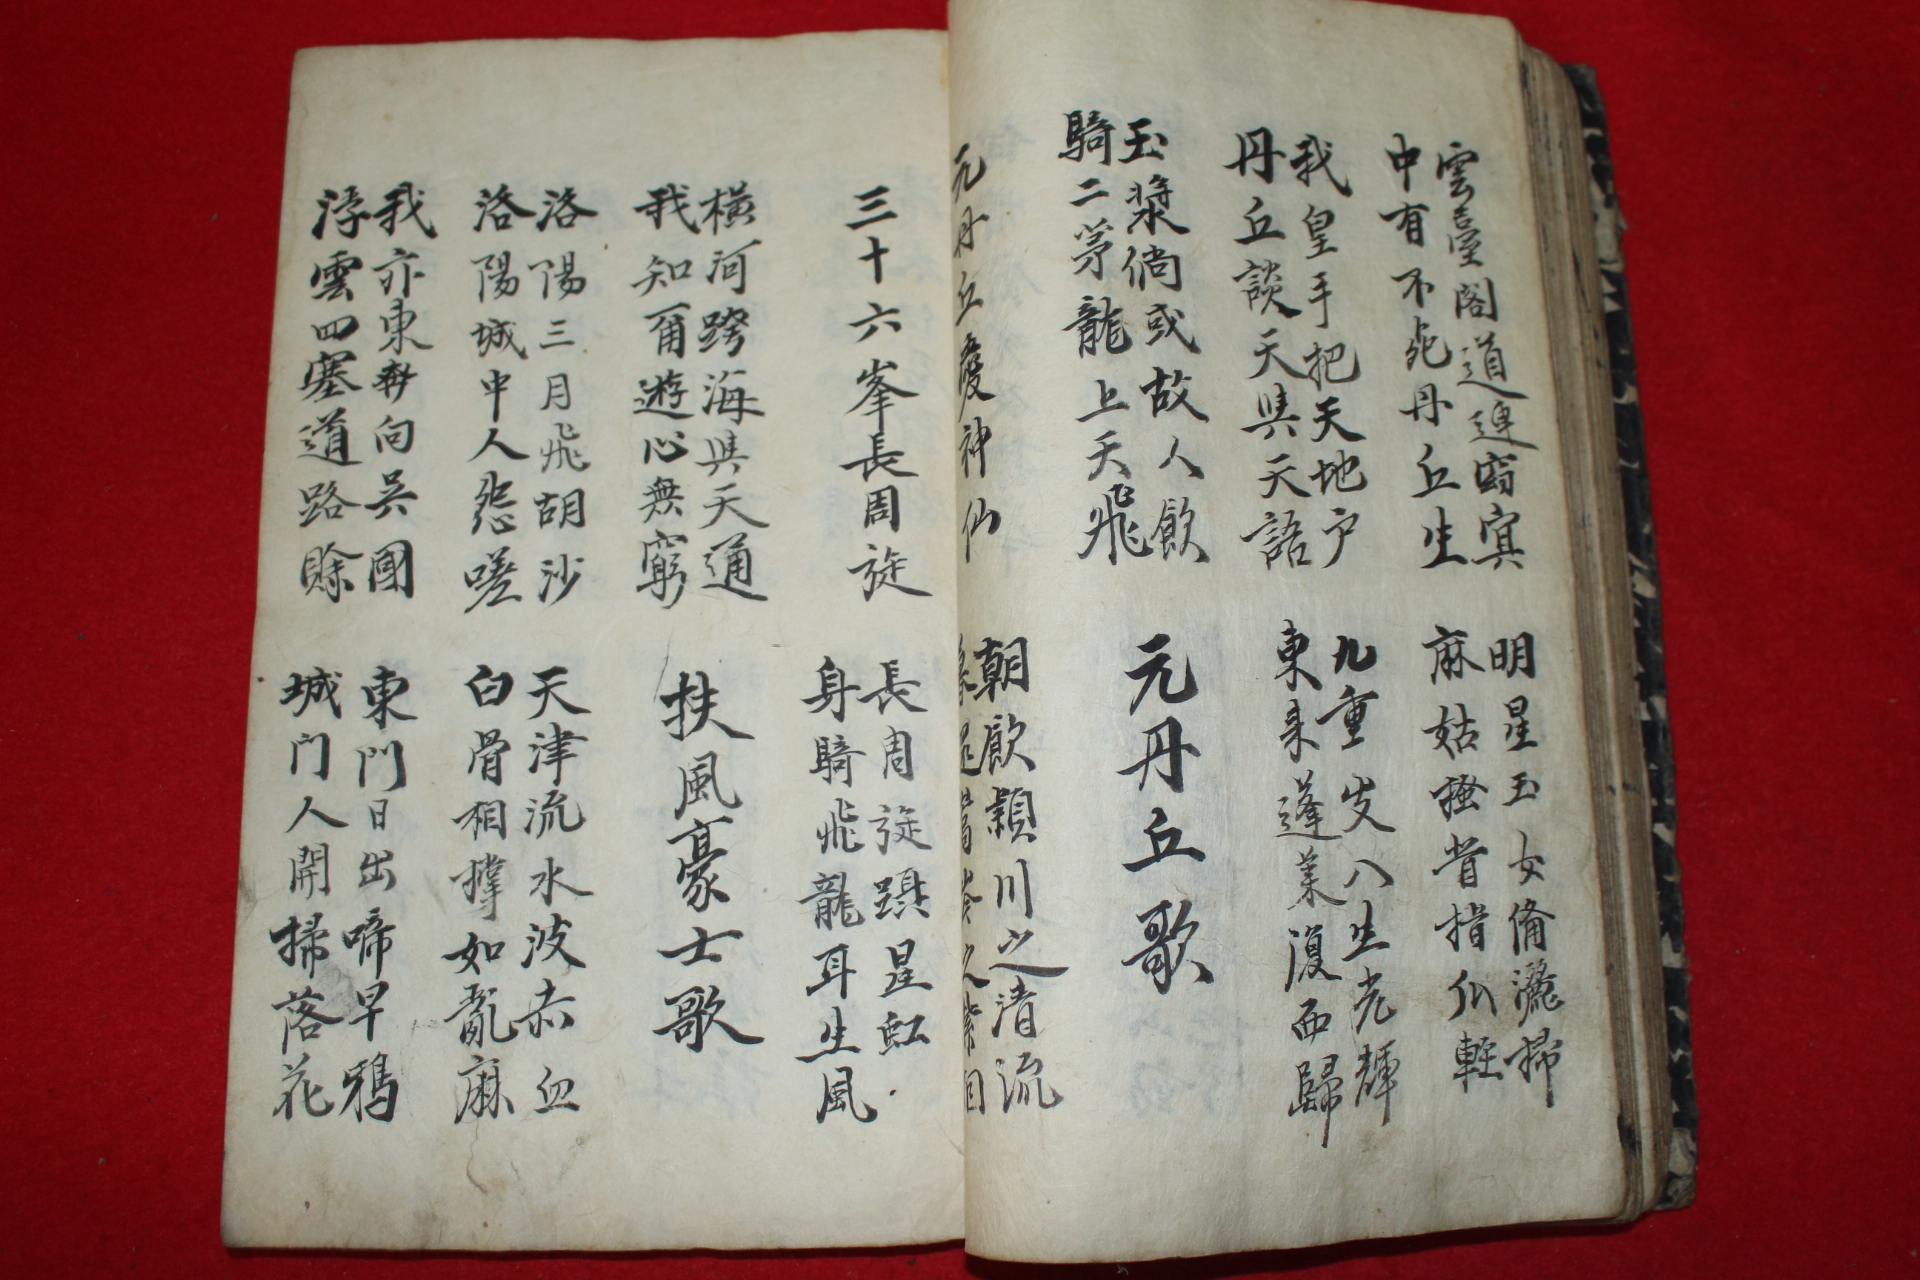 雲臺閣道連窈冥
中有不死丹丘生
明星玉女俻灑掃
麻姑搔背指爪輕
我皇手把天地户
丹丘談天與天語
九重出八生光輝
東來蓬萊復西歸
玉漿倘或故人飲
騎二茅龍上天飛
元丹丘歌
元丹丘愛神仙
朝飲潁川之清流
暮還嵩岑之紫烟
三十六峯長周旋
長周旋躡星虹
身騎飛龍耳生風
橫河跨海與天通
我知爾遊心無窮
扶風豪士歌
洛陽三月飛胡沙
洛陽城中人怨嗟
天津流水波赤血
白骨相撐如亂麻
我亦東奔向吳國
浮雲四塞道路賒
東門日出啼早鴉
城門人開掃落花